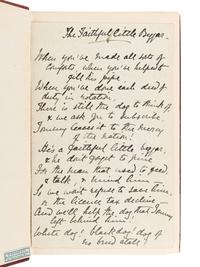 The Faithful Little Beggar.
When you've made all sorts of
comfort, when you've helped to
fill his pipe
When you've done each deed of
duty in rotation
There is still the dog to think of
& we ask you to subscribe.
Tommy leaves it to the mercy
of the nation!
He's a faithful little beggar,
& he don't forget to pine
For the man that used to feed
& talk & mind him
So we won't refuse to save him.
or the licence tax decline
And we'll help the dog that Tommy
left behind him!
White dog! black dog! dog of
no breed at all!